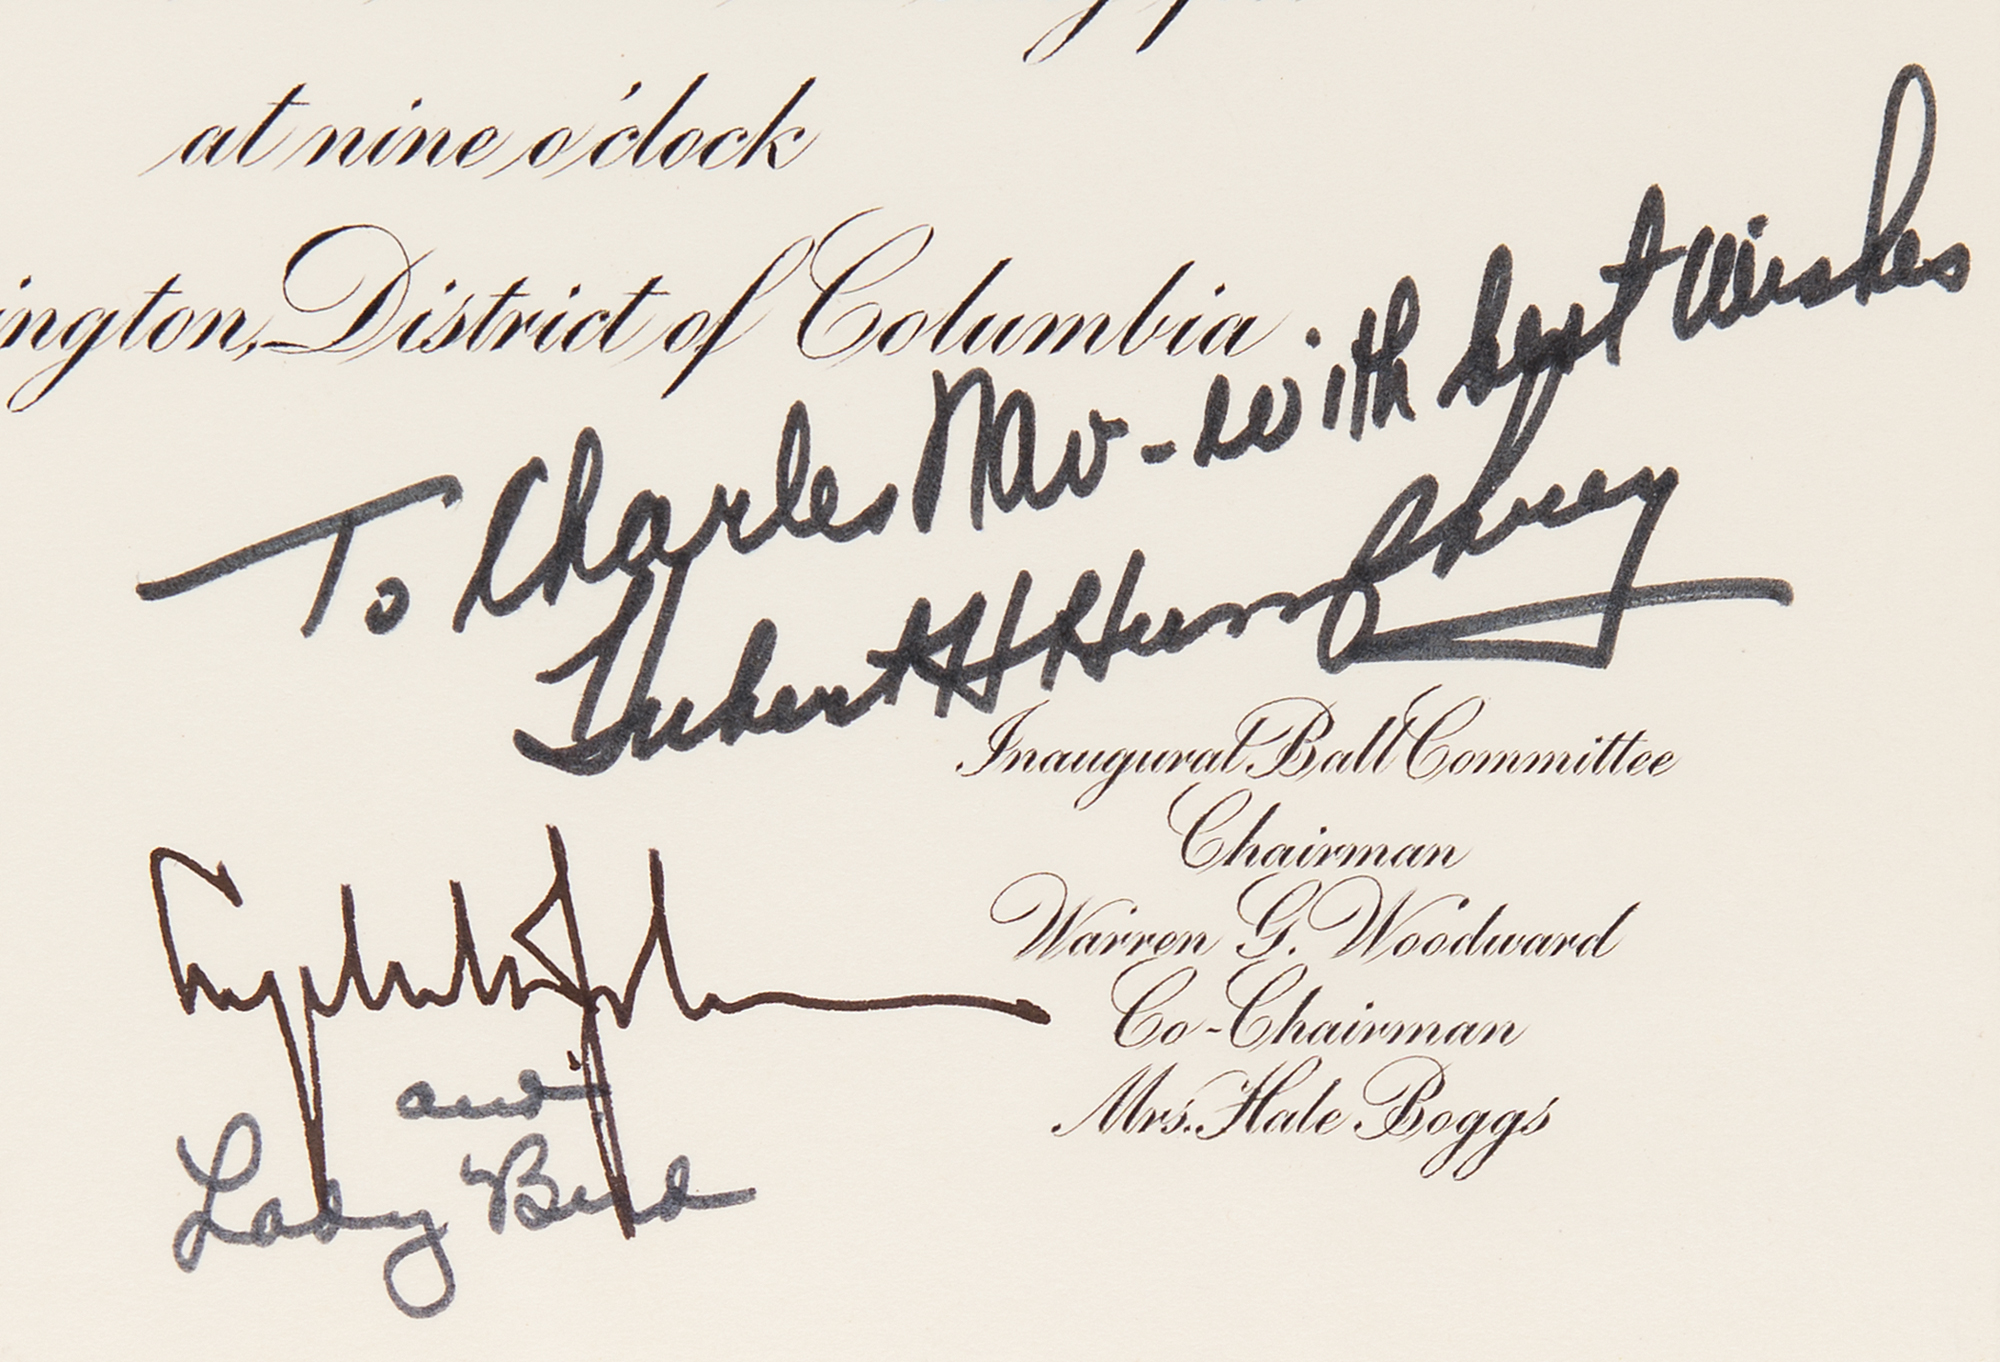 at nine o'clock
ington, District of Columbia
To Charles - with best wishes
Hubert H Humphrey
Inaugural Ball Committee
Chairman
Warren G. Woodward
Co-Chairman
Mrs. Hale Boggs
Lyndon B Johnson
and
Lady Bird